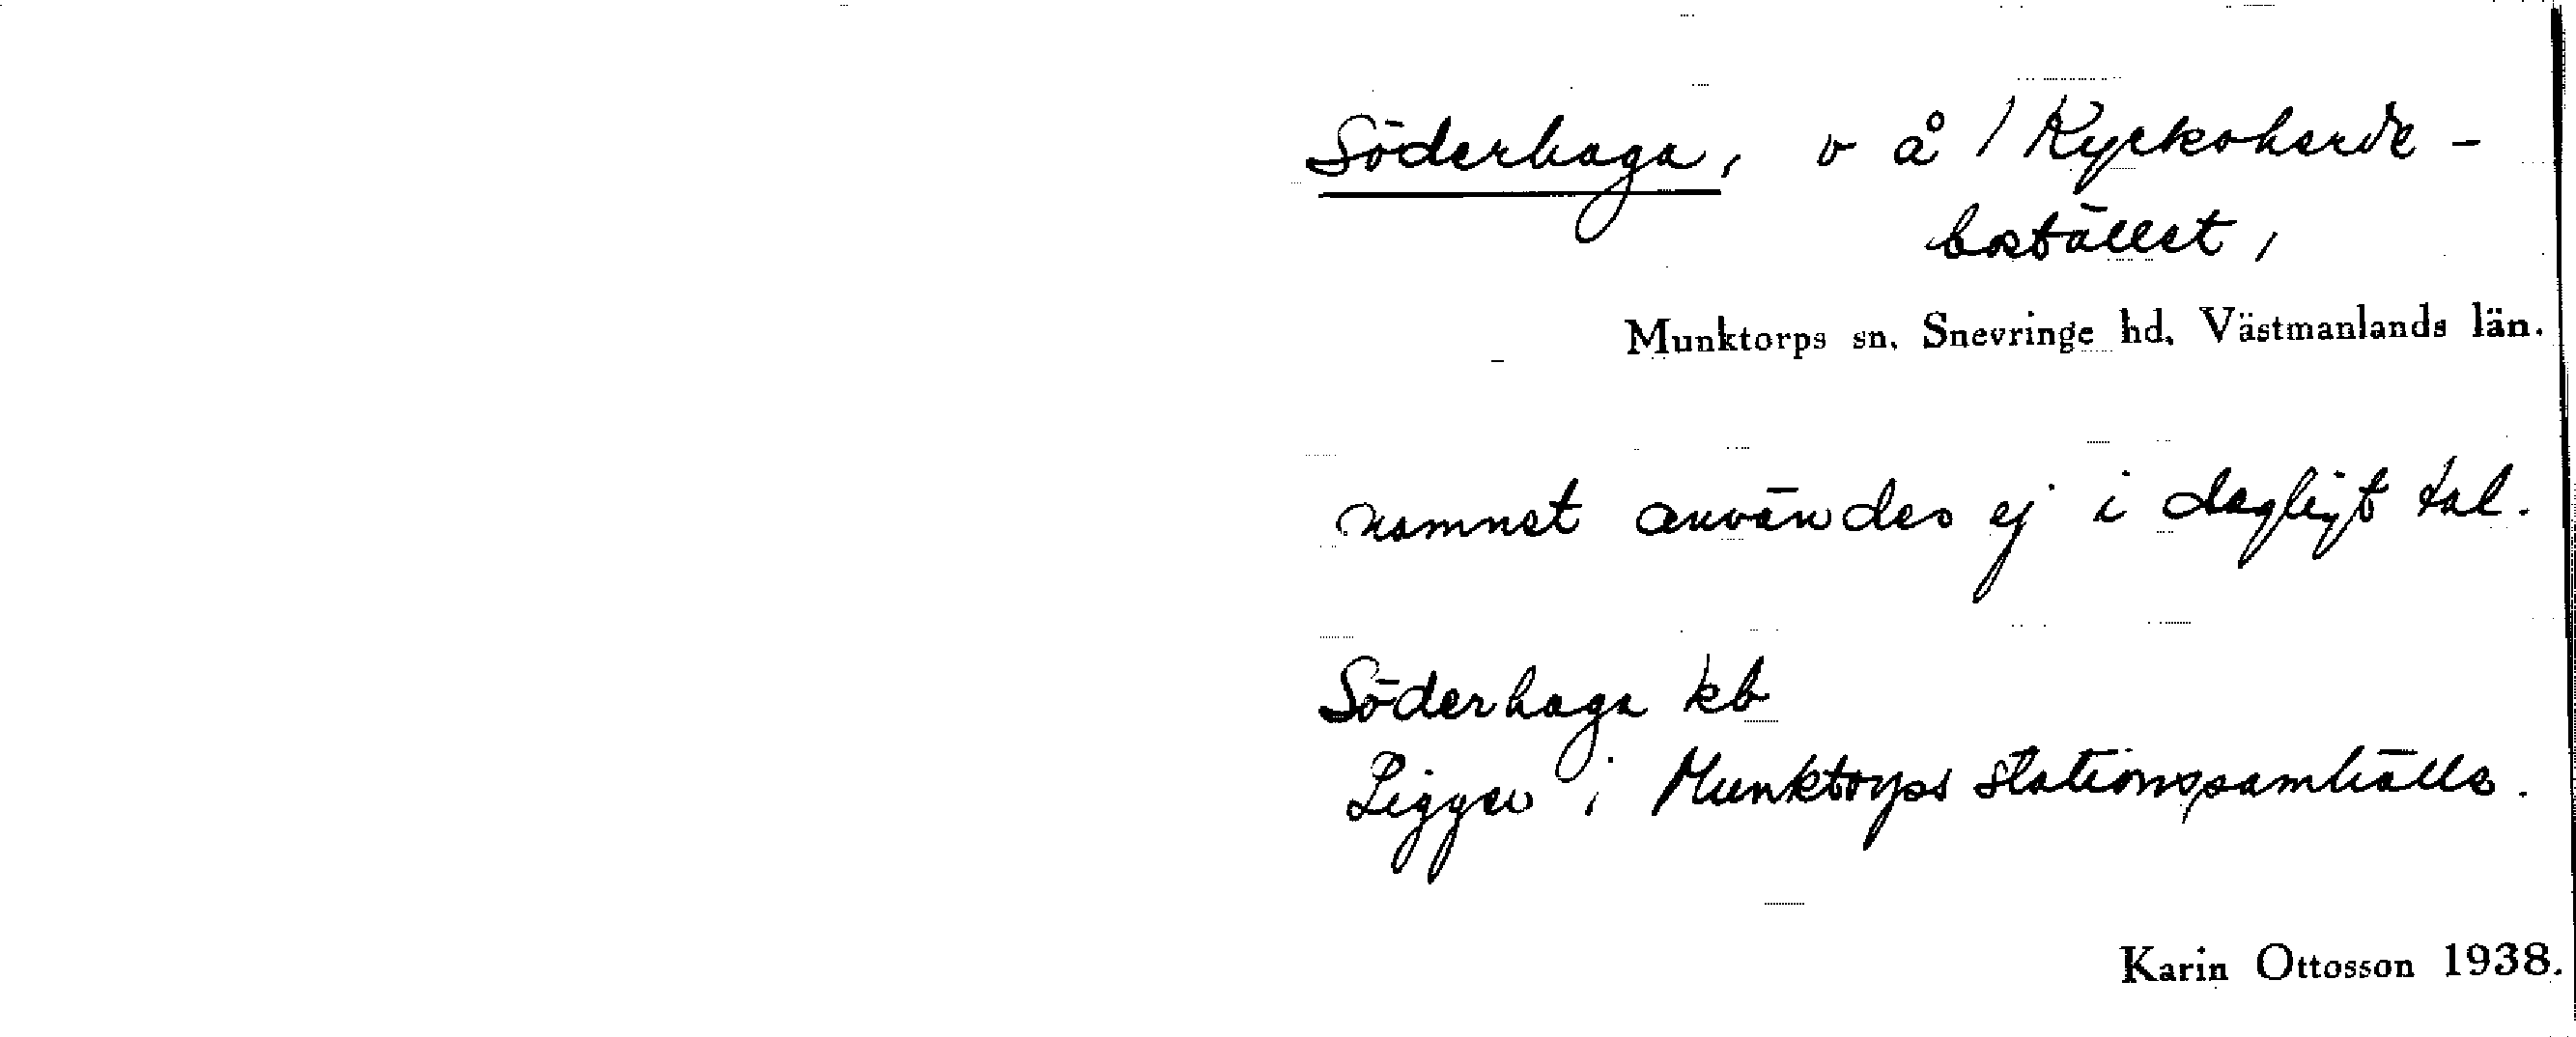 Söderhaga, v å / Kyrkoherde-
bostället,
Munktorps sn. Snevringe hd. Västmanlands län.
namnet användes ej i dagligt tal.
Söderhaga kb
Ligger i Munktorps stationssamhälle.
Karin Ottosson 1938.